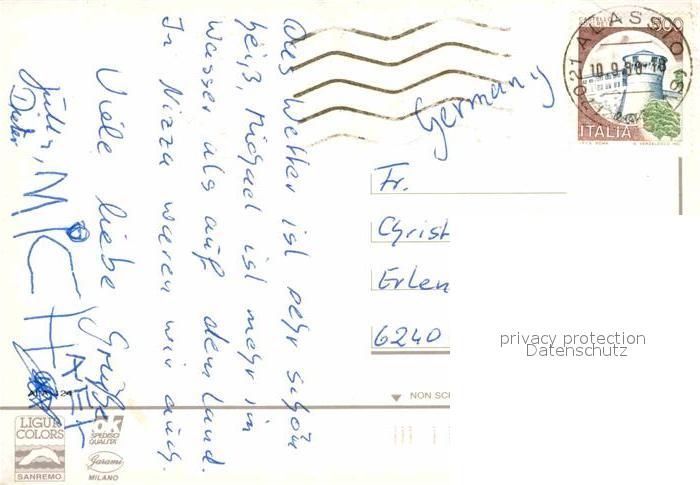 Das Wetter ist sehr schön
heiß, Michael ist mehr im
Wasser als auf dem Land.
In Nizza waren wir auch.
Viele liebe Grüße
Jutta,
Dieter
MICHAEL
Germany
Fr.
Christ
Erlen
6240
ALASSIO
10.9.88-18
17021
500
ITALIA
privacy protection
Datenschutz
NON SC
LIGUR
COLORS
SANREMO
OK
SPEDISCI
QUALITA'
Garami
MILANO